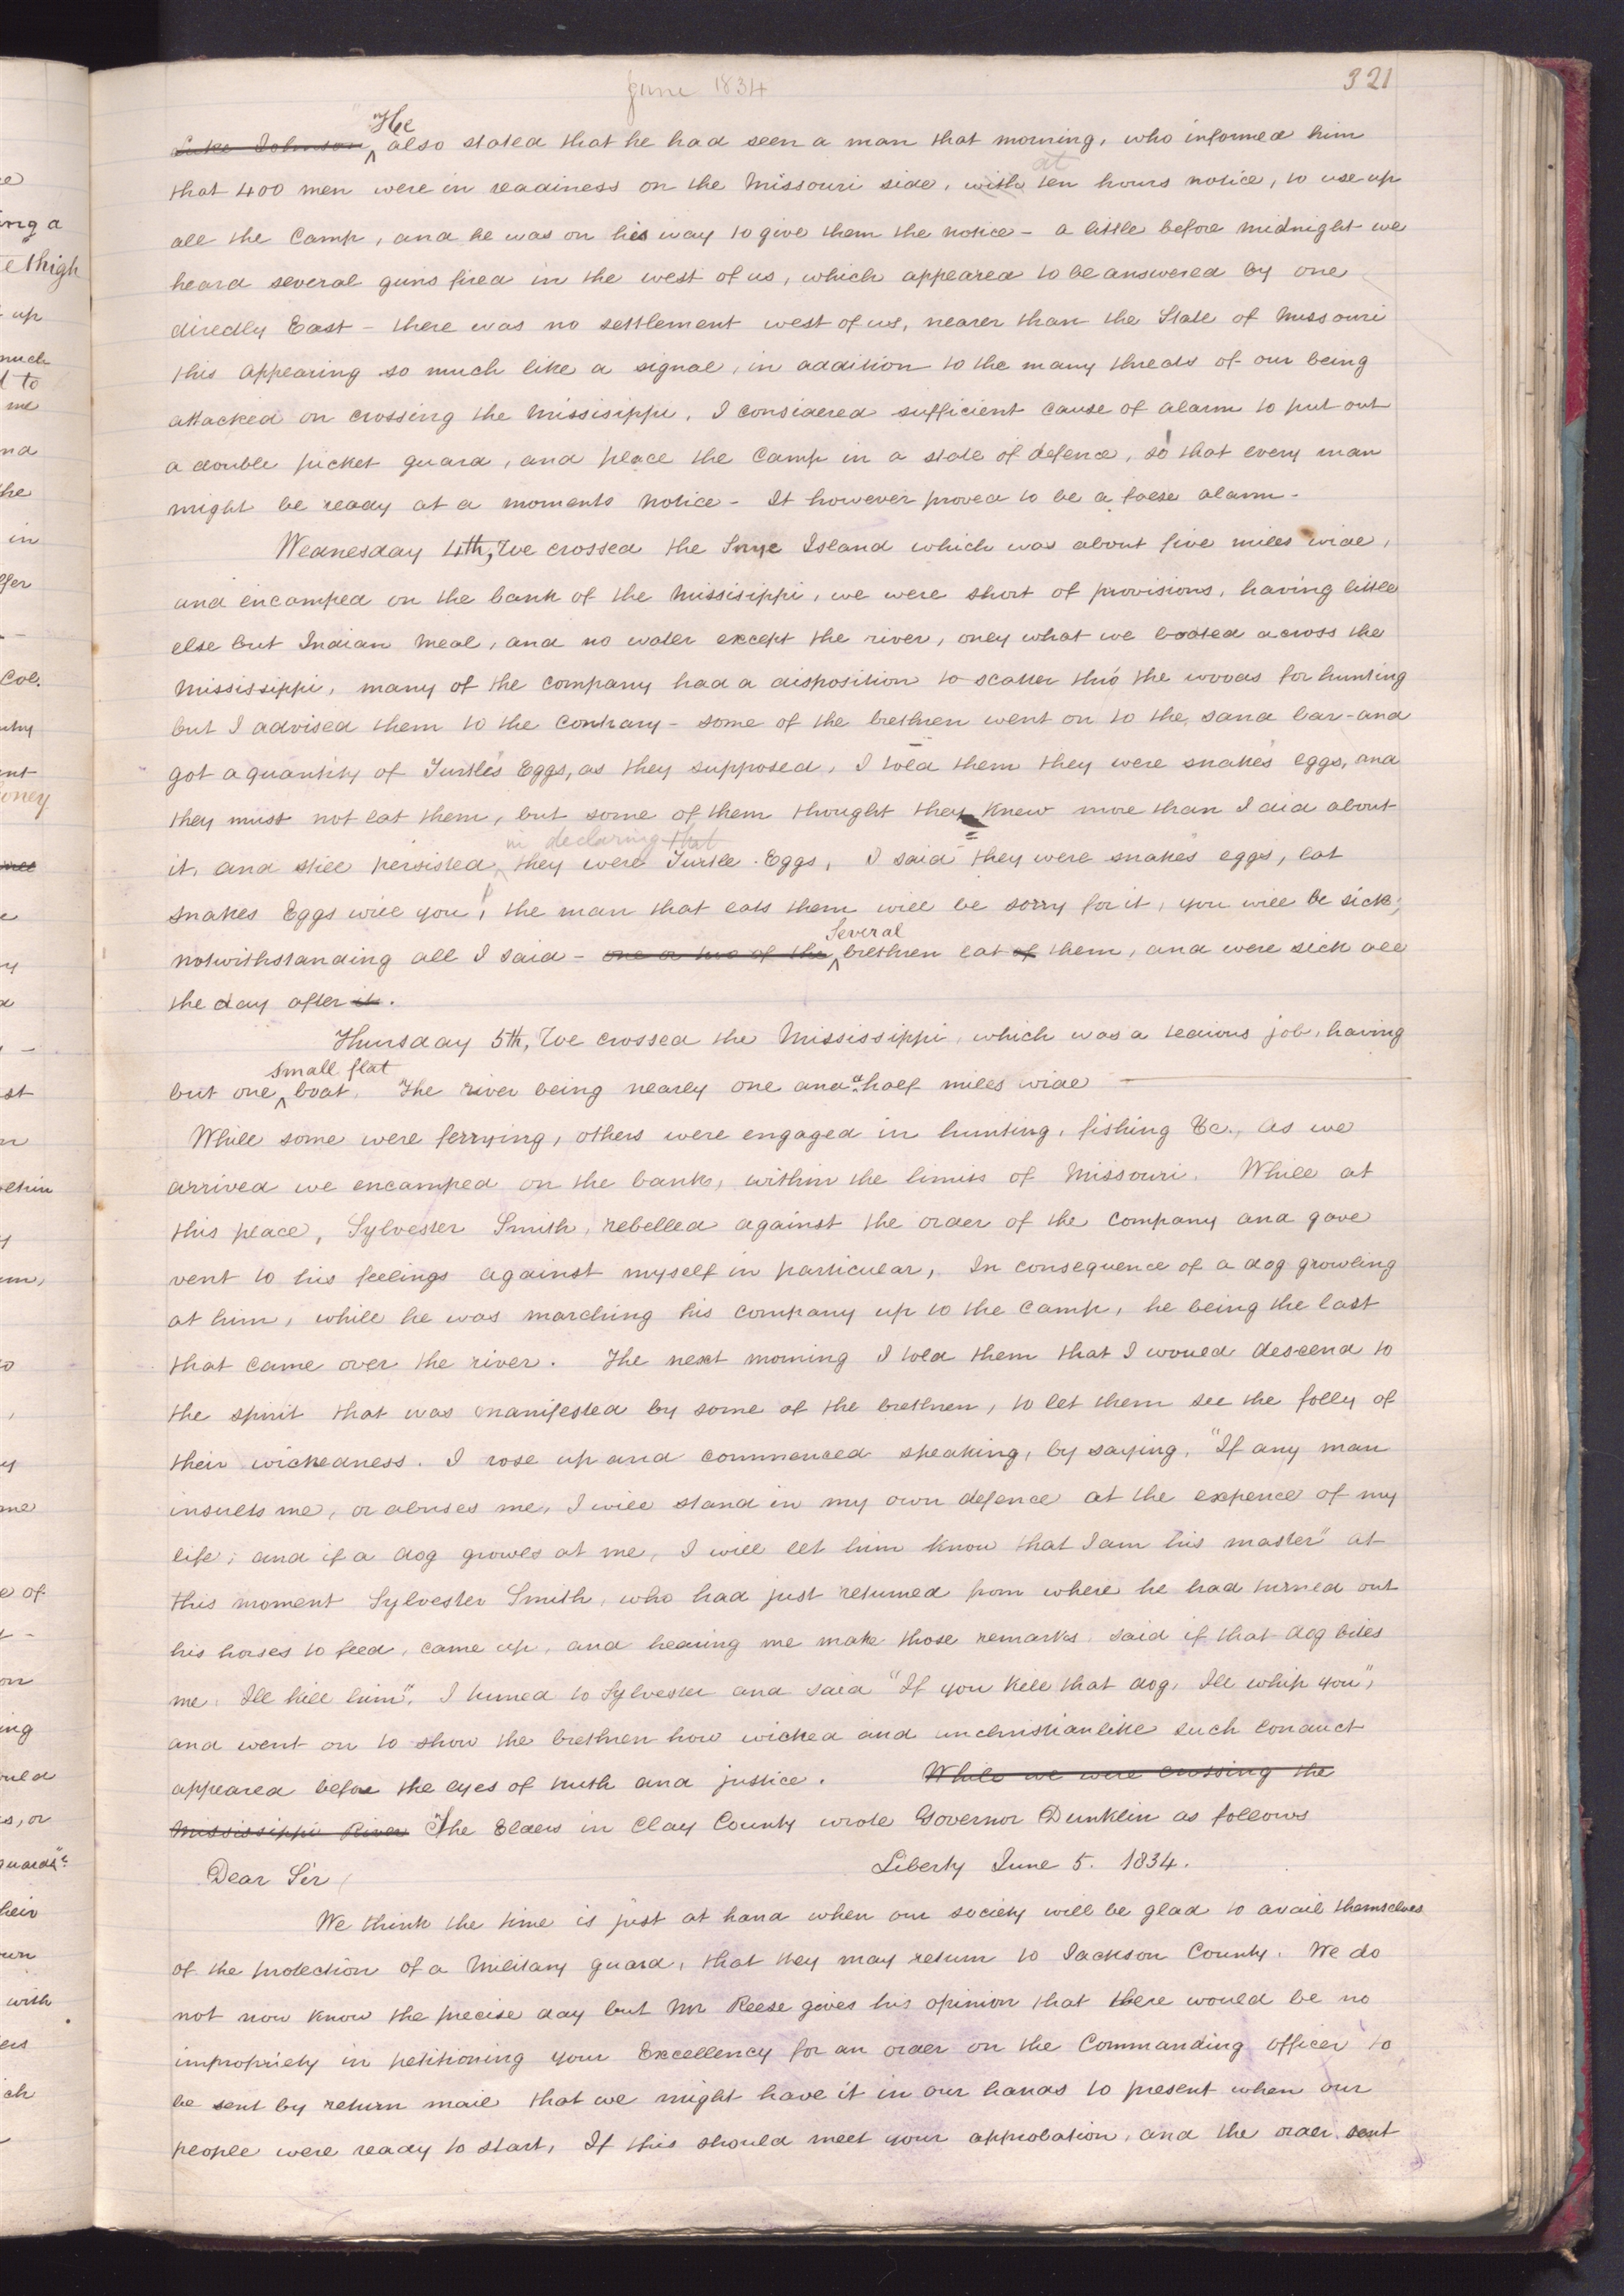 June 1834
321
~~Luke Johnson~~ ^He also stated that he had seen a man that morning, who informed him
that 400 men were in readiness on the Missouri side, ~~with~~ at ten hours notice, to use up
all the Camp, and he was on his way to give them the notice - a little before midnight we
heard several guns fired in the west of us, which appeared to be answered by one
directly East - there was no settlement west of us, nearer than the State of Missouri
this appearing so much like a signal, in addition to the many threats of our being
attacked on crossing the Missisippi, I considered sufficient cause of alarm to put out
a double picket guard, and place the Camp in a state of defence, so that every man
might be ready at a moments notice - It however proved to be a false alarm -
Wednesday 4th, We crossed the Snye Island which was about five miles wide,
and encamped on the bank of the Missisippi, we were short of provisions, having little
else but Indian Meal, and no water except the river, only what we boated across the
Mississippi, many of the company had a disposition to scatter thro' the woods for hunting
but I advised them to the contrary - some of the brethren went on to the sand bar - and
got a quantity of Turtles Eggs, as they supposed, I told them they were snakes eggs, and
they must not eat them, but some of them thought they knew more than I did about
it, and still persisted ^in declaring ~~that~~ they were Turtle Eggs, I said they were snakes eggs, eat
snakes Eggs will you! the man that eats them will be sorry for it, you will be sick,
notwithstanding all I said - ~~one or two of the~~ ^Several brethren eat ~~of~~ them, and were sick all
the day after ~~it~~.
Thursday 5th, We crossed the Mississippi, which was a tedious job, having
but one ^small flat boat, The river being nearly one and a half miles wide
While some were ferrying, others were engaged in hunting, fishing &c., as we
arrived we encamped on the bank, within the limits of Missouri. While at
this place, Sylvester Smith, rebelled against the order of the company and gave
vent to his feelings against myself in particular, In consequence of a dog growling
at him, while he was marching his company up to the camp, he being the last
that came over the river. The next morning I told them that I would descend to
the spirit that was manifested by some of the brethren, to let them see the folly of
their wickedness. I rose up and commenced speaking, by saying, "If any man
insults me, or abuses me, I will stand in my own defence at the expence of my
life; and if a dog growls at me, I will let him know that I am his master" at
this moment Sylvester Smith, who had just returned from where he had turned out
his horses to feed, came up, and hearing me make those remarks said if that dog bites
me, Ill kill him". I turned to Sylvester and said "If you kill that dog, Ill whip you",
and went on to show the brethren how wicked and unchristianlike such conduct
appeared before the eyes of truth and justice. ~~While we were crossing the~~
~~Mississippi River~~ The Elders in Clay County wrote Governor Dunklin as follows
Liberty June 5. 1834.
Dear Sir
We think the time is just at hand when our society will be glad to avail themselves
of the protection of a Military guard, that they may return to Jackson County. We do
not now know the precise day but Mr Reese gives his opinion that there would be no
impropriety in petitioning your Excellency for an order on the Commanding officer to
be sent by return mail that we might have it in our hands to present when our
people were ready to start, If this should meet your approbation, and the order sent